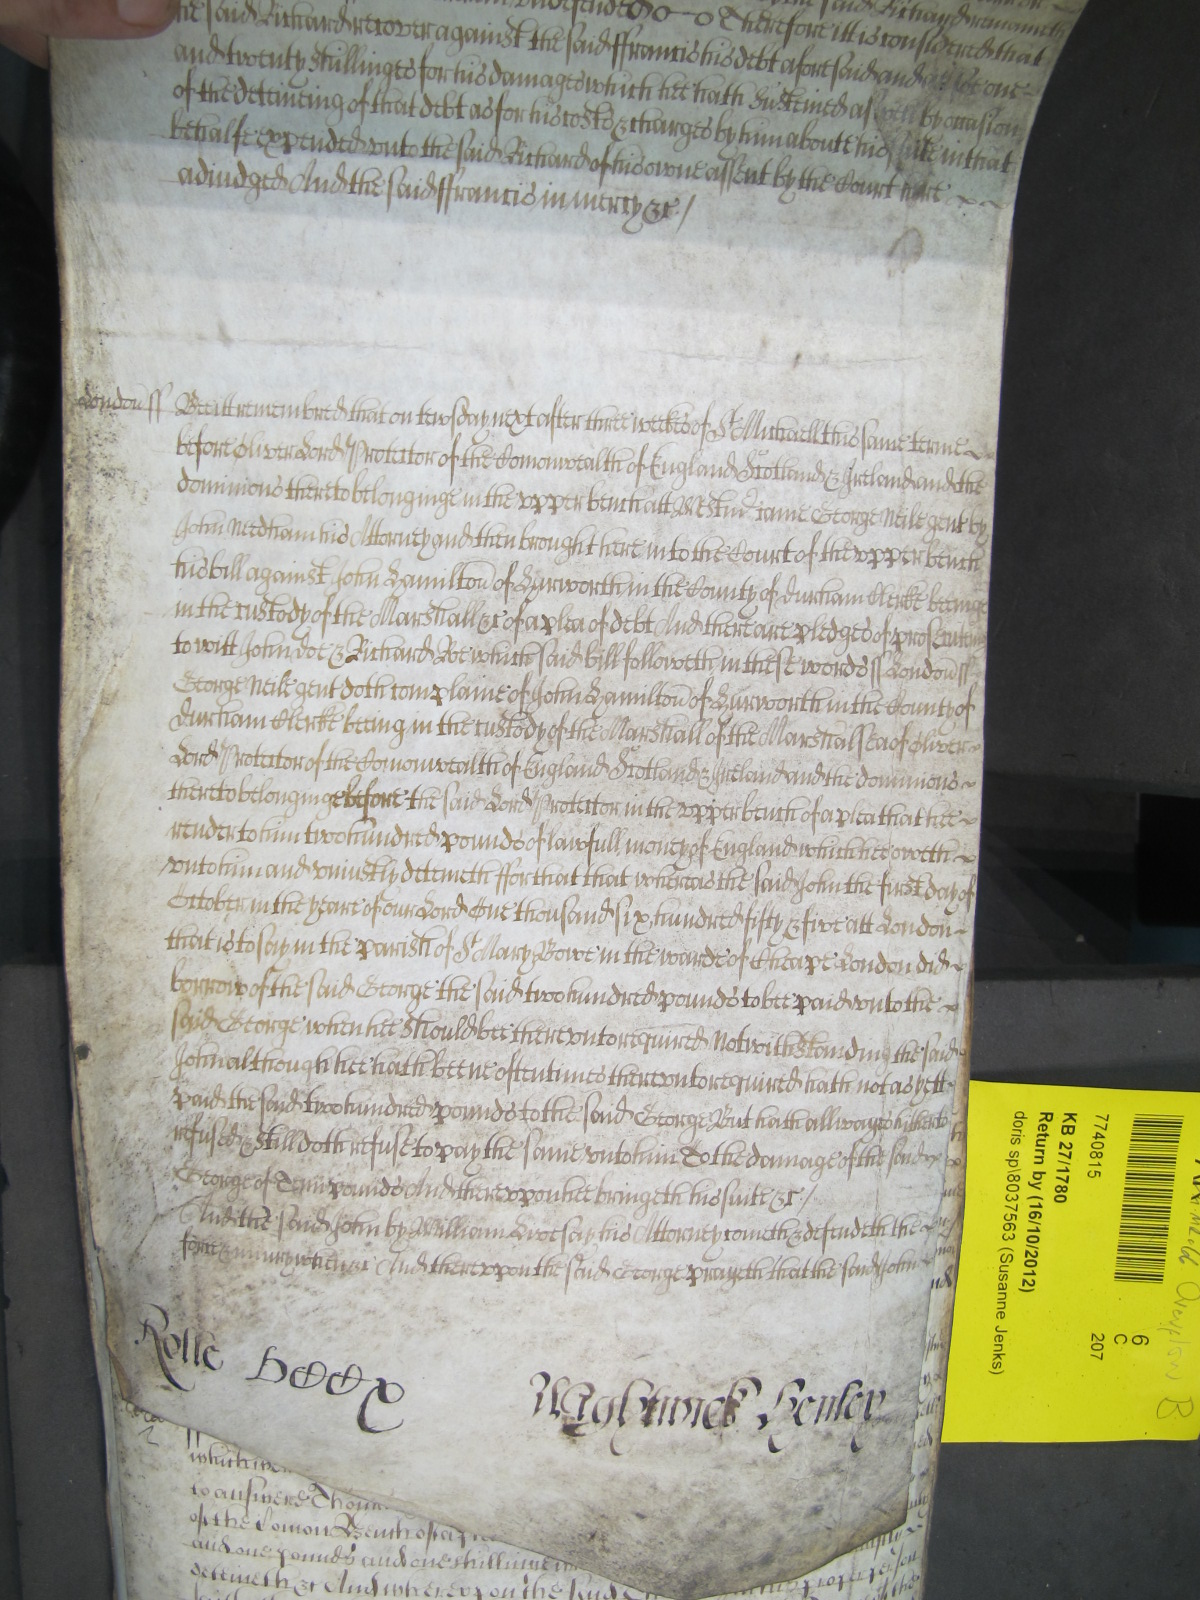 the said Richard recover against the said ffrancis his debt aforesaid and
and twenty shillinges for his damages which hee hath susteined as well by occasion
of the deteineing of that debt as for his costs & charges by him about his suite in that
behalfe expended unto the said Richard of his owne assent by the Court here
adiudged And the said ffrancis in mercy &c /
London ss Bee itt remembred that on tewsday next after three weekes of St Michaell this same terme
before Oliver Lord Protector of the Comonwealth of England Scotland & Ireland and the
dominions thereto belonginge in the upper bench att Westmr came George Neile gent by
John Needham his Attorney and then brought here into the Court of the upper bench
his bill against John Hamilton of Hurworth in the County of durham Clerke beeinge
in the custody of the Marshall &c of a plea of debt And there are pledges of prosecuteing
to witt John doe & Richard Roe which said bill followeth in these words ss London ss
George Neile gent doth complaine of John Hamilton of Hurworth in the County of
durham Clerke beeing in the custody of the Marshall of the Marshalsea of Oliver
Lord Protector of the Comonwealth of England Scotland & Ireland and the dominions
thereto belonginge before the said Lord Protector in the upper bench of a plea that hee
render to him two hundred pounds of lawfull money of England which hee oweth
unto him and uniustly deteineth ffor that that whereas the said John the first day of
October in the yeare of our Lord One thousand six hundred fifty & five att London
that is to say in the parish of St Mary Bowe in the warde of Cheape London did
borrow of the said George the said two hundred pounds to bee paid unto the
said George when hee should bee thereunto required Notwithstanding the said
John although hee hath beene oftentimes thereunto required hath not as yett
paid the said two hundred pounds to the said George But hath allwayes hitherto
refused & still doth refuse to pay the same unto him To the damage of the said
George of Tenn pounds And thereuppon hee bringeth his suite &c /
And the said John by William Livesay his Attorney cometh & defendeth the
force & iniury when &c And thereuppon the said George prayeth that the said John
Rolle
Wightwick Henley
to answere Thomas
of the Comon Bench of a
and one pounds and one shillinge
deteineth &c And whereupon the said
7740815
KB 27/1780
Return by (16/10/2012)
doris sp\8037563 (Susanne Jenks)
6
C
207
B